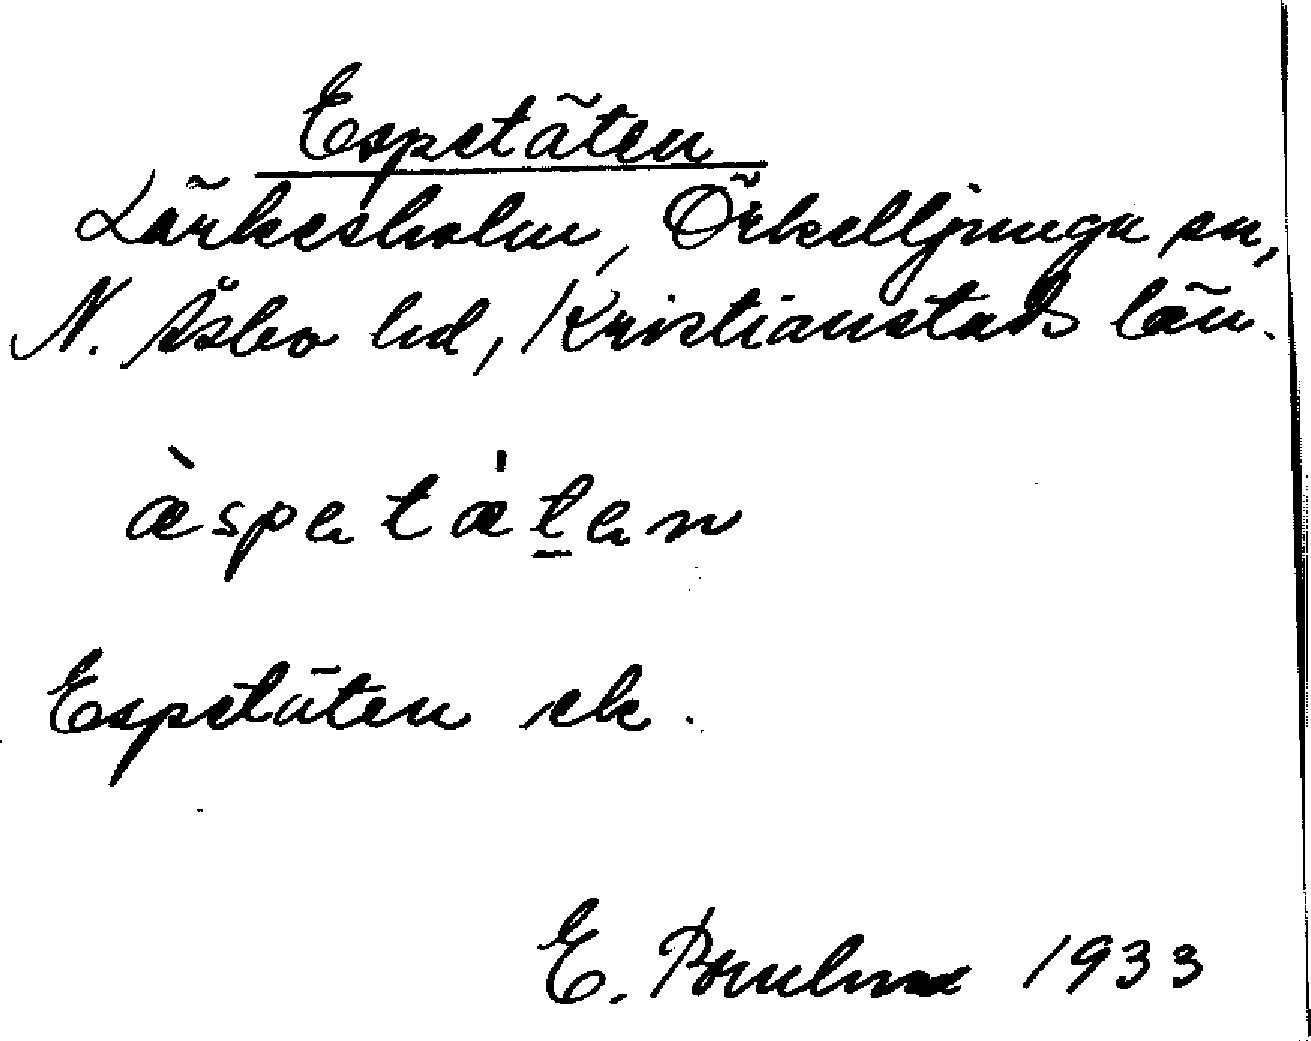 Espetäten
Lärkesholm, Örkelljunga sn,
N. Åsbo hd, Kristianstads län.
æ̀spetæ̍ṯen
Espetäten ek.
E. 1933